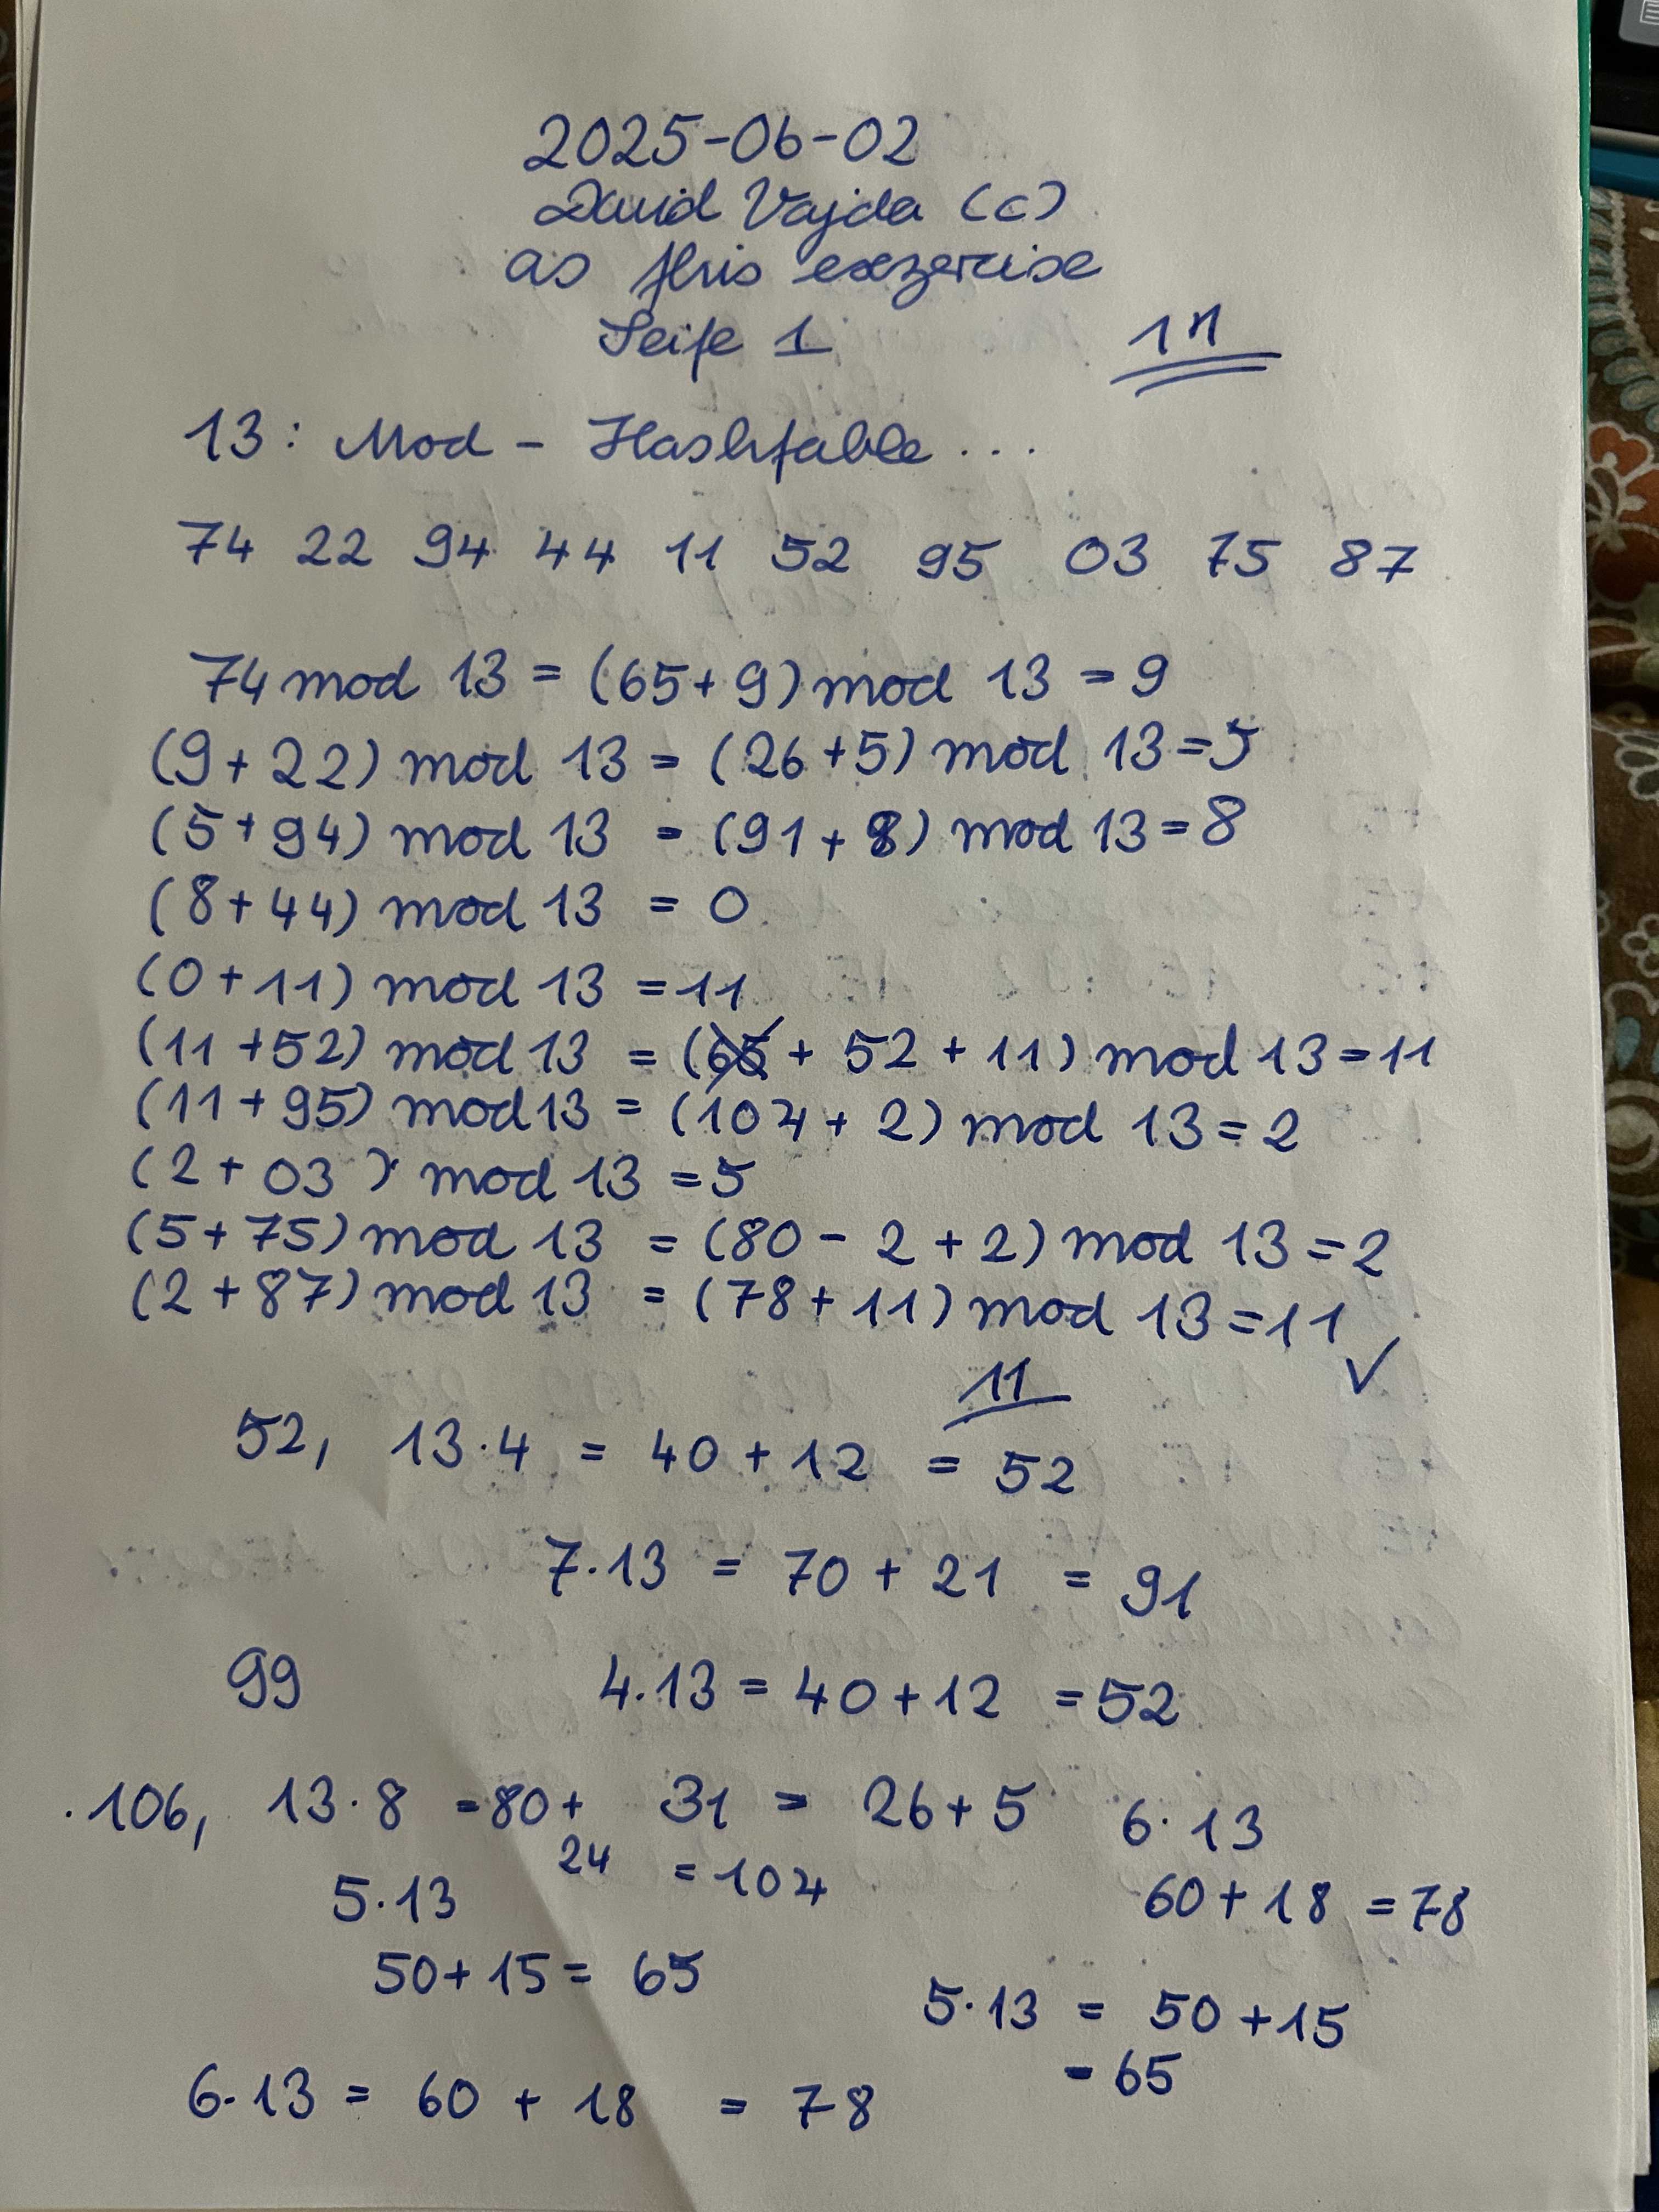 2025-06-02
David Vajda (c)
as this exzercise
Seite 1
11
13: Mod - Hashtable ...
74 22 94 44 11 52 95 03 75 87
74 mod 13 = (65+9) mod 13 = 9
(9+22) mod 13 = (26+5) mod 13 = 5
(5+94) mod 13 = (91+8) mod 13 = 8
(8+44) mod 13 = 0
(0+11) mod 13 = 11
(11+52) mod 13 = (65 + 52 + 11) mod 13 = 11
(11+95) mod 13 = (104 + 2) mod 13 = 2
(2+03) mod 13 = 5
(5+75) mod 13 = (80 - 2 + 2) mod 13 = 2
(2+87) mod 13 = (78+11) mod 13 = 11 ✓
11
52, 13·4 = 40 + 12 = 52
7·13 = 70 + 21 = 91
99 4·13 = 40+12 = 52
106, 13·8 = 80+ 31 = 26+5 6·13
24 = 104
5·13 60+18 = 78
50+15 = 65
5·13 = 50+15
= 65
6·13 = 60 + 18 = 78